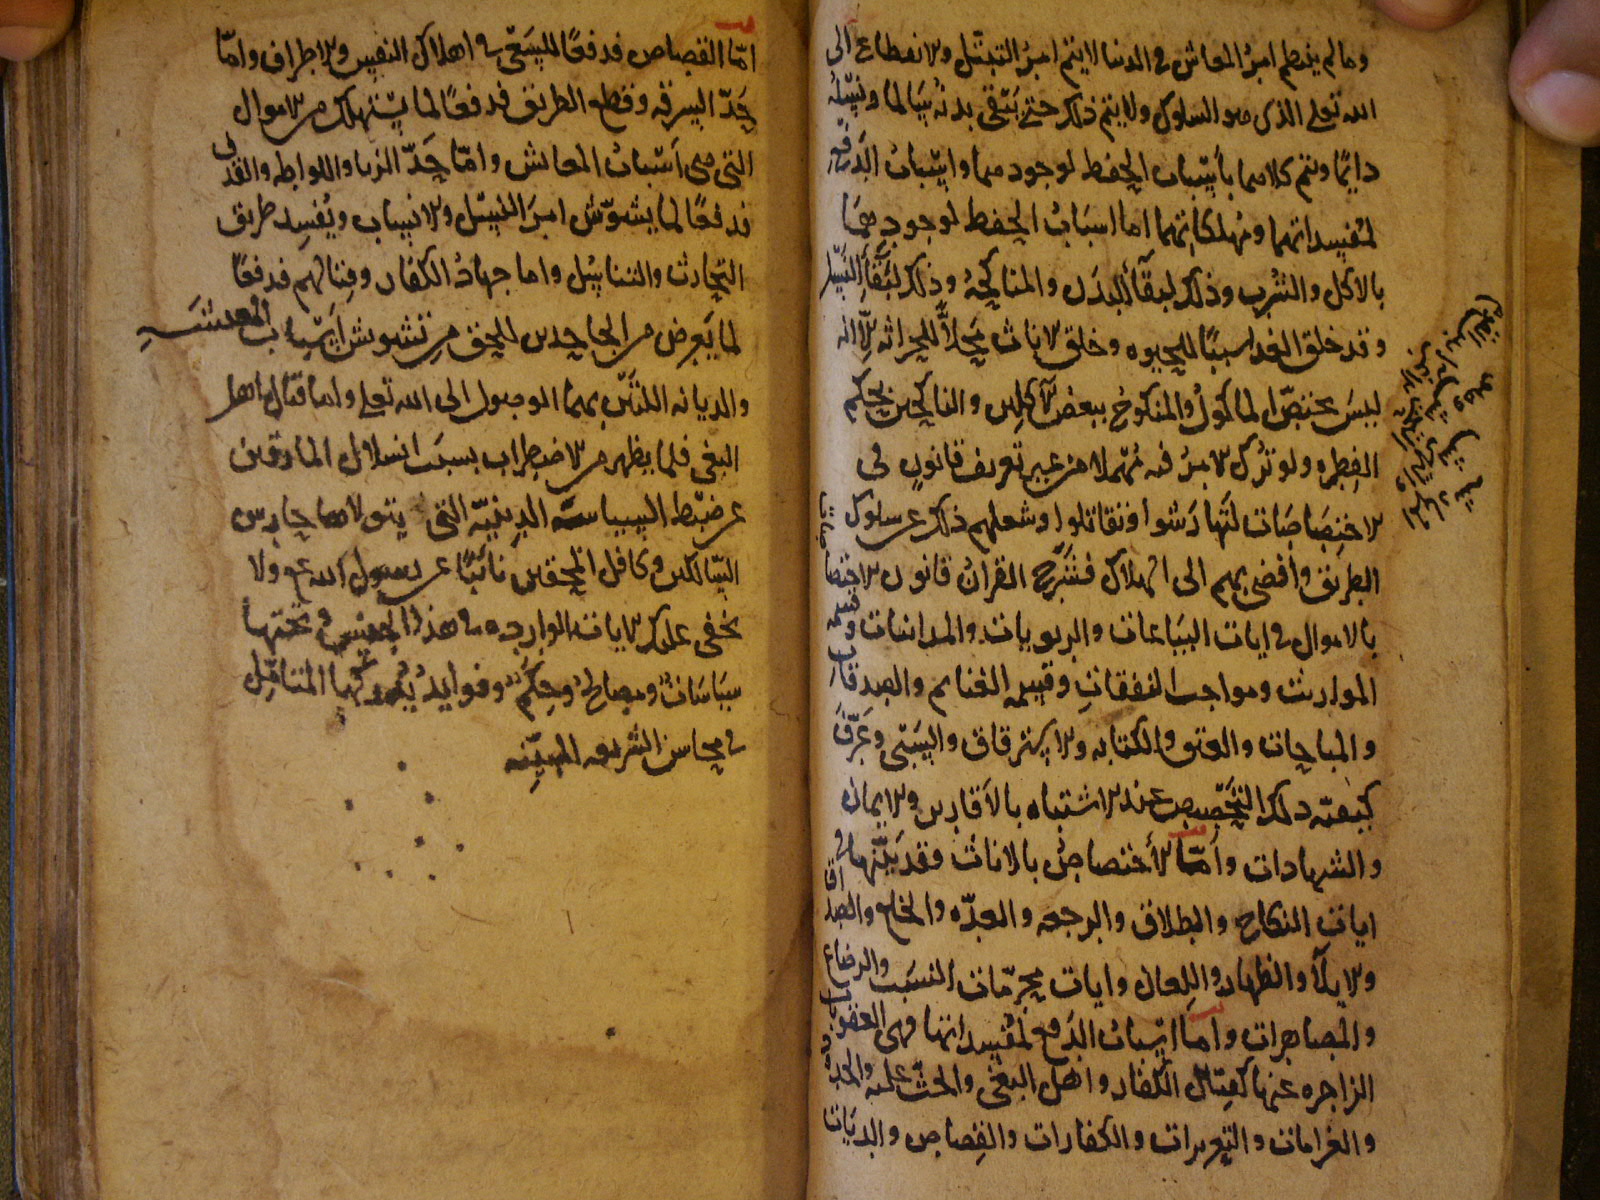 وما لم ينتظم امر المعاش في الدنيا لا يتم امر التبتل والانقطاع الى
الله تعلى الذي هو السلوك ولا يتم ذلك حتى يبقى بدنه سالما ونسله
دايما ويتم كلاهما بأسباب الحفظ لوجودهما واسباب الدفع
لمفسداتهما ومهلكاتهما اما اسباب الحفظ لوجودهما
بالاكل والشرب وذلك لبقآ البدن والمناكحة وذلك لبقآ النسل
وقد خلق الغدا سببا للحيوه وخلق الاناث محلا للحراثه الا انه
ليس يختص الماكول والمنكوح ببعض الآكلين والناكحين بحكم
الفطره ولو ترك الامر فيه مهملا من غير تعريف قانون في
الاختصاصات لتهارشوا وتقاتلوا وشغلهم ذلك عن سلوك
الطريق وافضى بهم الى الهلاك فشرح القران قانون الاختصاصات
بالاموال في ايات البياعات والربويات والمداينات وقسمه
المواريث ومواجب النفقات وقسمه الغنايم والصدقات
والمباحات والعتق والكتابه والاسترقاق والسبى وعرف
كيفيه ذلك التخصيص عند الاشتباه بالاقارير والايمان
والشهادات وأما الأختصاص بالاناث وقد بينها في
ايات النكاح والطلاق والرجعه والعده والخلع والصداق
والايلآ والظهار واللعان وايات محرمات النسب والرضاع
والمصاهرات واما اسباب الدفع لمفسداتها فهي العقوبات
الزاجره عنها كقتال الكفار واهل البغى والحث عليه والحدود
والغرامات والتعزيرات والكفارات والقصاص والديات
اما القصاص فدفعا للسعى في اهلاك النفس والاطراف واما
حد السرقه وقطع الطريق فدفعا لما يستهلك من الاموال
التى هي اسباب المعاش واما حد الزنا واللواطه والقذف
فدفعا لما يشوش امر النسل والانساب ويفسد طريق
التحارث والتناسل واما جهاد الكفار وقتالهم فدفعا
لما يعرض من الجاحدين للحق من تشويش اسباب المعيشة
والديانه اللتين بهما الوصول الى الله تعلى واما قتال اهل
البغى فلما يظهر من الاضطراب بسبب انسلال المارقين
عن ضبط السياسه الدينيه التي يتولاها حارس
السالكين وكافل المحقين نائبا عن رسول الله ع م ولا
يخفى عليك الايات الوارده في هذا الجنس وتحتها
سياسات ومصالح وحكم وفوايد يدركها المتامل
في محاسن الشريعه المبينه